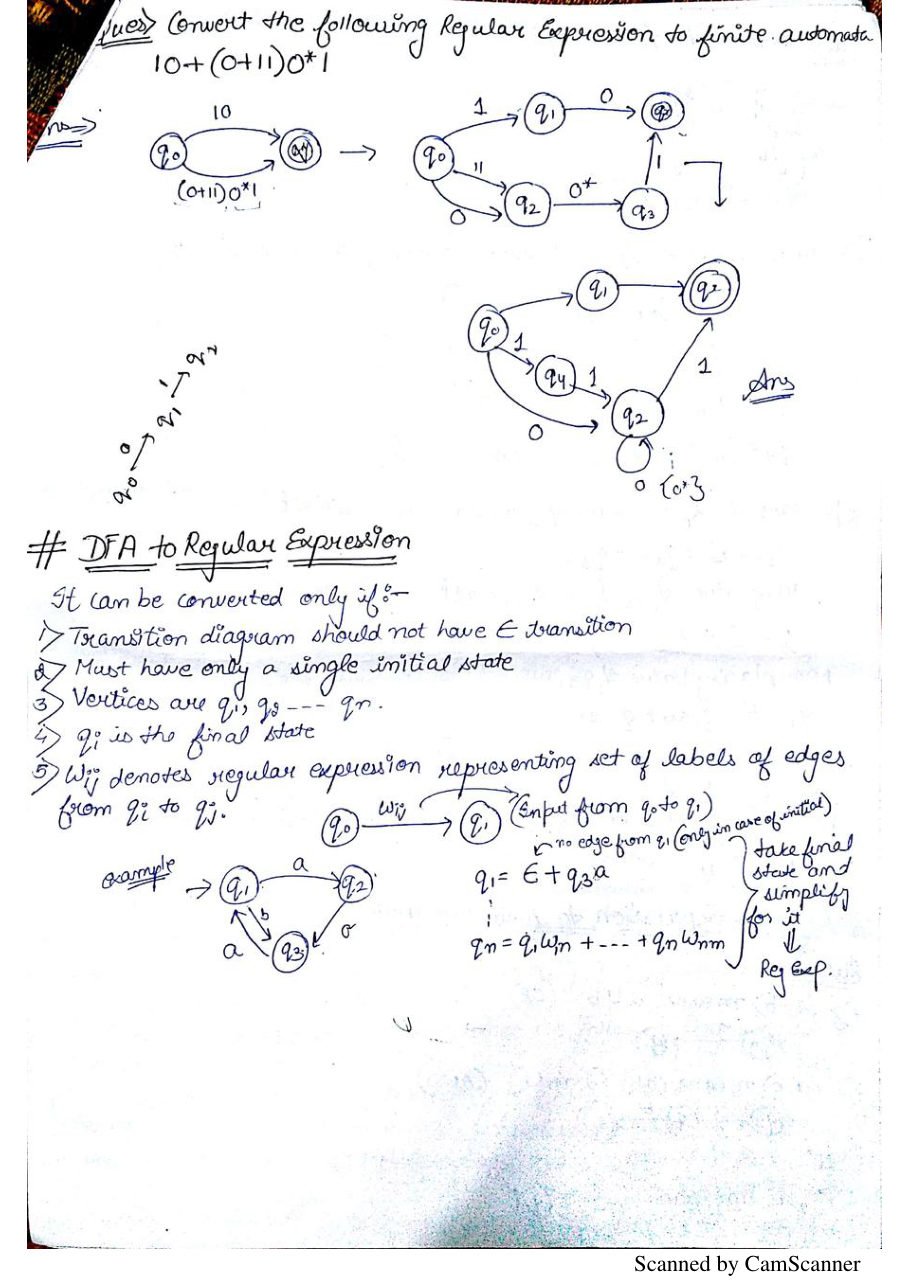 Ques> Convert the following Regular Expression to finite automata
10+(0+11)0*1
Ans=>
10
q0
qf
(0+11)0*1
1
q1
0
qf
q0
11
0
q2
0*
q3
1
q0
q1
qf
1
q4
1
q2
1
0
0 {0*}
Ans
q0 0 q1 1 q2
# DFA to Regular Expression
It can be converted only if:-
1> Transition diagram should not have ∈ transition
2> Must have only a single initial state
3> Vertices are q1, q2 --- qn.
4> qi is the final state
5> Wij denotes regular expression representing set of labels of edges
from qi to qj.
q0 wij q1 (Input from q0 to q1)
no edge from q1 (only in case of initial)
example
q1 a q2
b
a
q3
q1 = ∈ + q3a
qn = q1W1n + --- + qnWnm
take final
state and
simplify
for it
Reg Exp.
Scanned by CamScanner